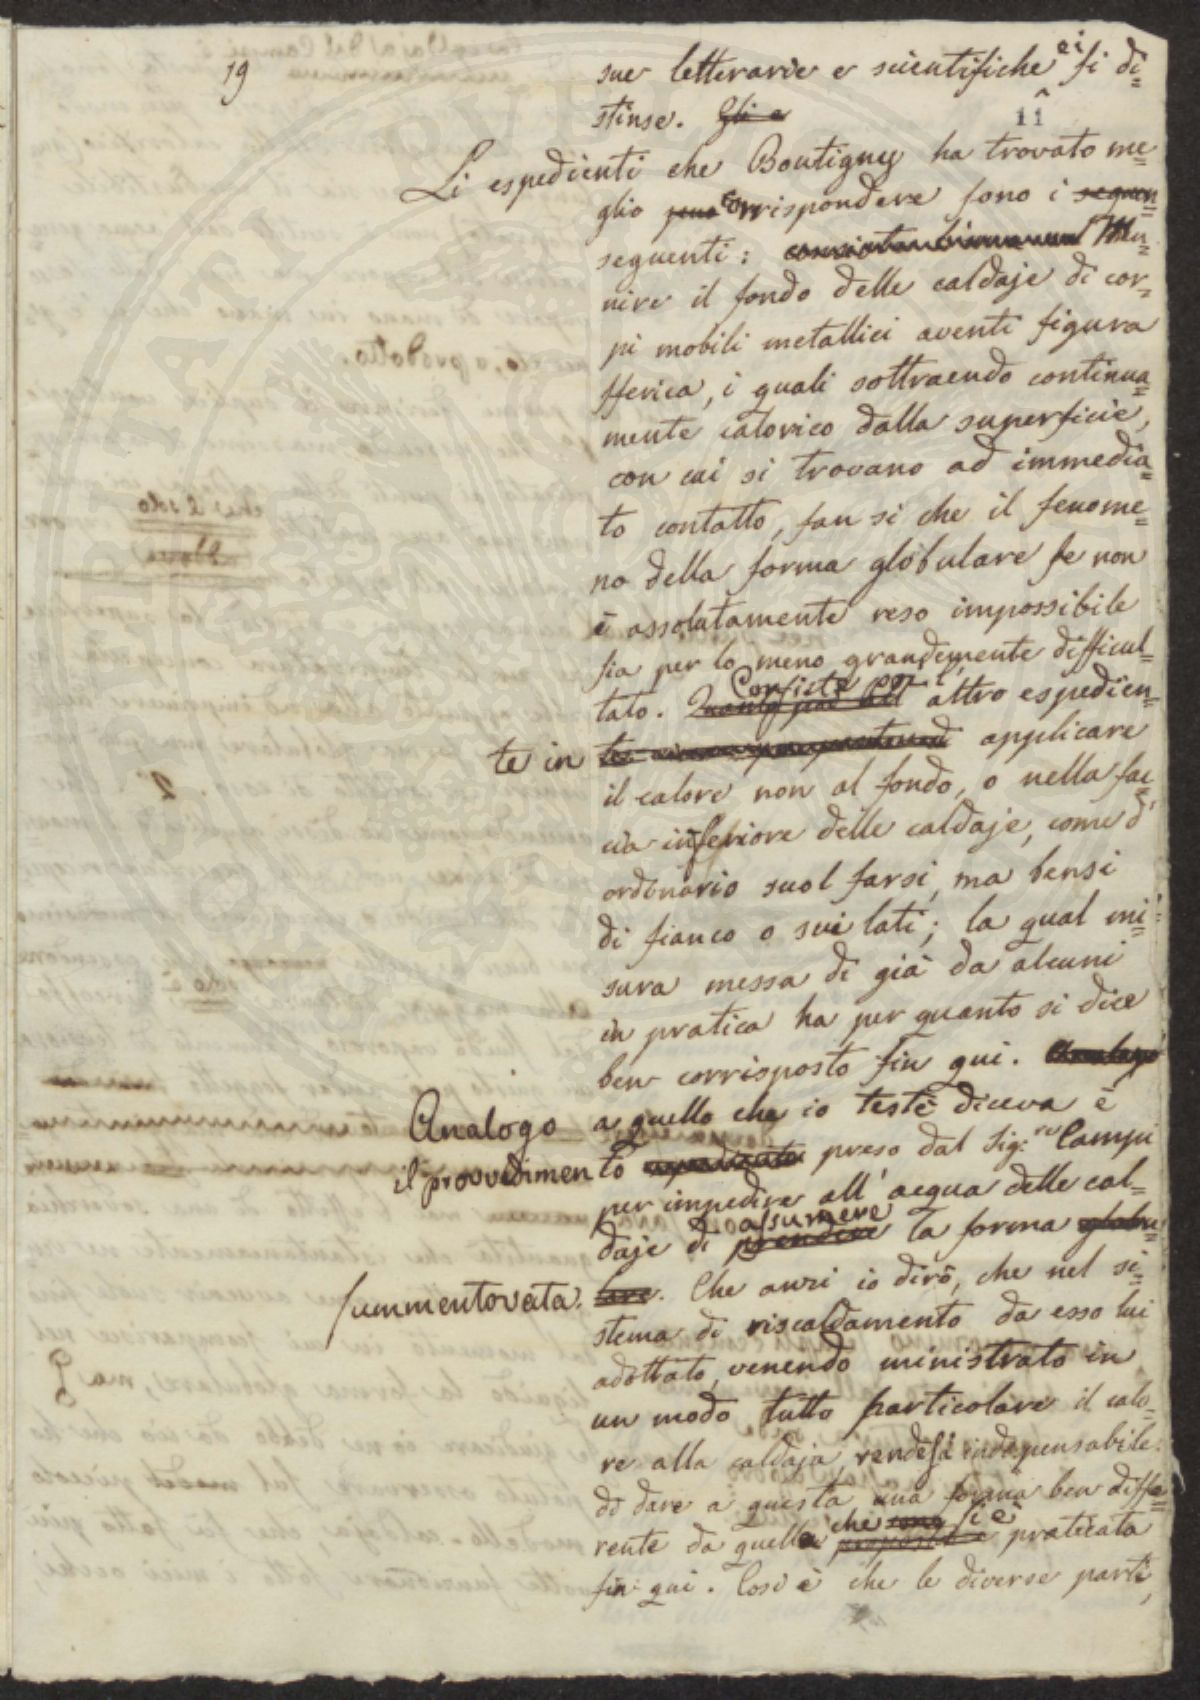 19
sue letterarie e scientifiche ei si di=
stinse. Gli e
11
Li espedienti che Boutigny ha trovato me=
glio corrispondere sono i seguen=
seguenti: Mu=
nire il fondo delle caldaje di cor=
pi mobili metallici aventi figura
sferica, i quali sottraendo continua=
mente calorico dalla superficie,
con cui si trovano ad immedia=
to contatto, fan si che il fenome=
no della forma globulare se non
è assolutamente reso impossibile
sia per lo meno grandemente difficul=
tato. Consiste poi l' altro espedien=
te in applicare
il calore non al fondo, o nella fac=
cia inferiore delle caldaje, come d'
ordinario suol farsi, ma bensi
di fianco o sui lati; la qual mi=
sura messa di già da alcuni
in pratica ha per quanto si dice
ben corrisposto fin qui. Analogo
Analogo a quello che io testè diceva è
il provvedimento espediente preso dal Sig.re Campi
per impedire all' acqua delle cal=
daje di prendere assumere la forma globu=
summentovata. lare. Che anzi io dirò, che nel si=
stema di riscaldamento da esso lui
adottato, venendo ministrato in
un modo tutto particolare il calo=
re alla caldaja, rendesi indispensabile
di dare a questa una forma ben diffe=
rente da quella che si è praticata
fin qui. Cosi è che le diverse parti,